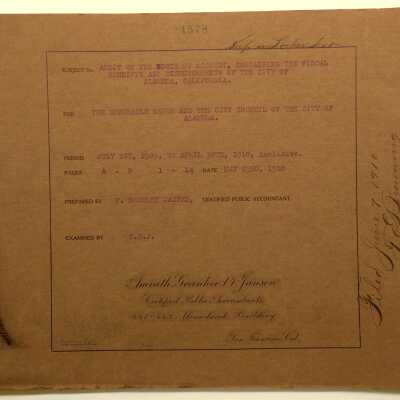 1578
SUBJECT: AUDIT OF THE BOOKS OF ACCOUNT, CONCERNING THE FISCAL
RECEIPTS AND DISBURSEMENTS OF THE CITY OF
ALAMEDA, CALIFORNIA.
FOR THE HONORABLE MAYOR AND THE CITY COUNCIL OF THE CITY OF
ALAMEDA.
PERIOD JULY 1ST, 1909, TO APRIL 30TH, 1910, Inclusive.
PAGES A. B 1 - 14 DATE MAY 23RD, 1910
PREPARED BY CERTIFIED PUBLIC ACCOUNTANT.
EXAMINED BY
Certified Public Accountants
Monadnock Building
San Francisco Cal.
Filed June 7 1910